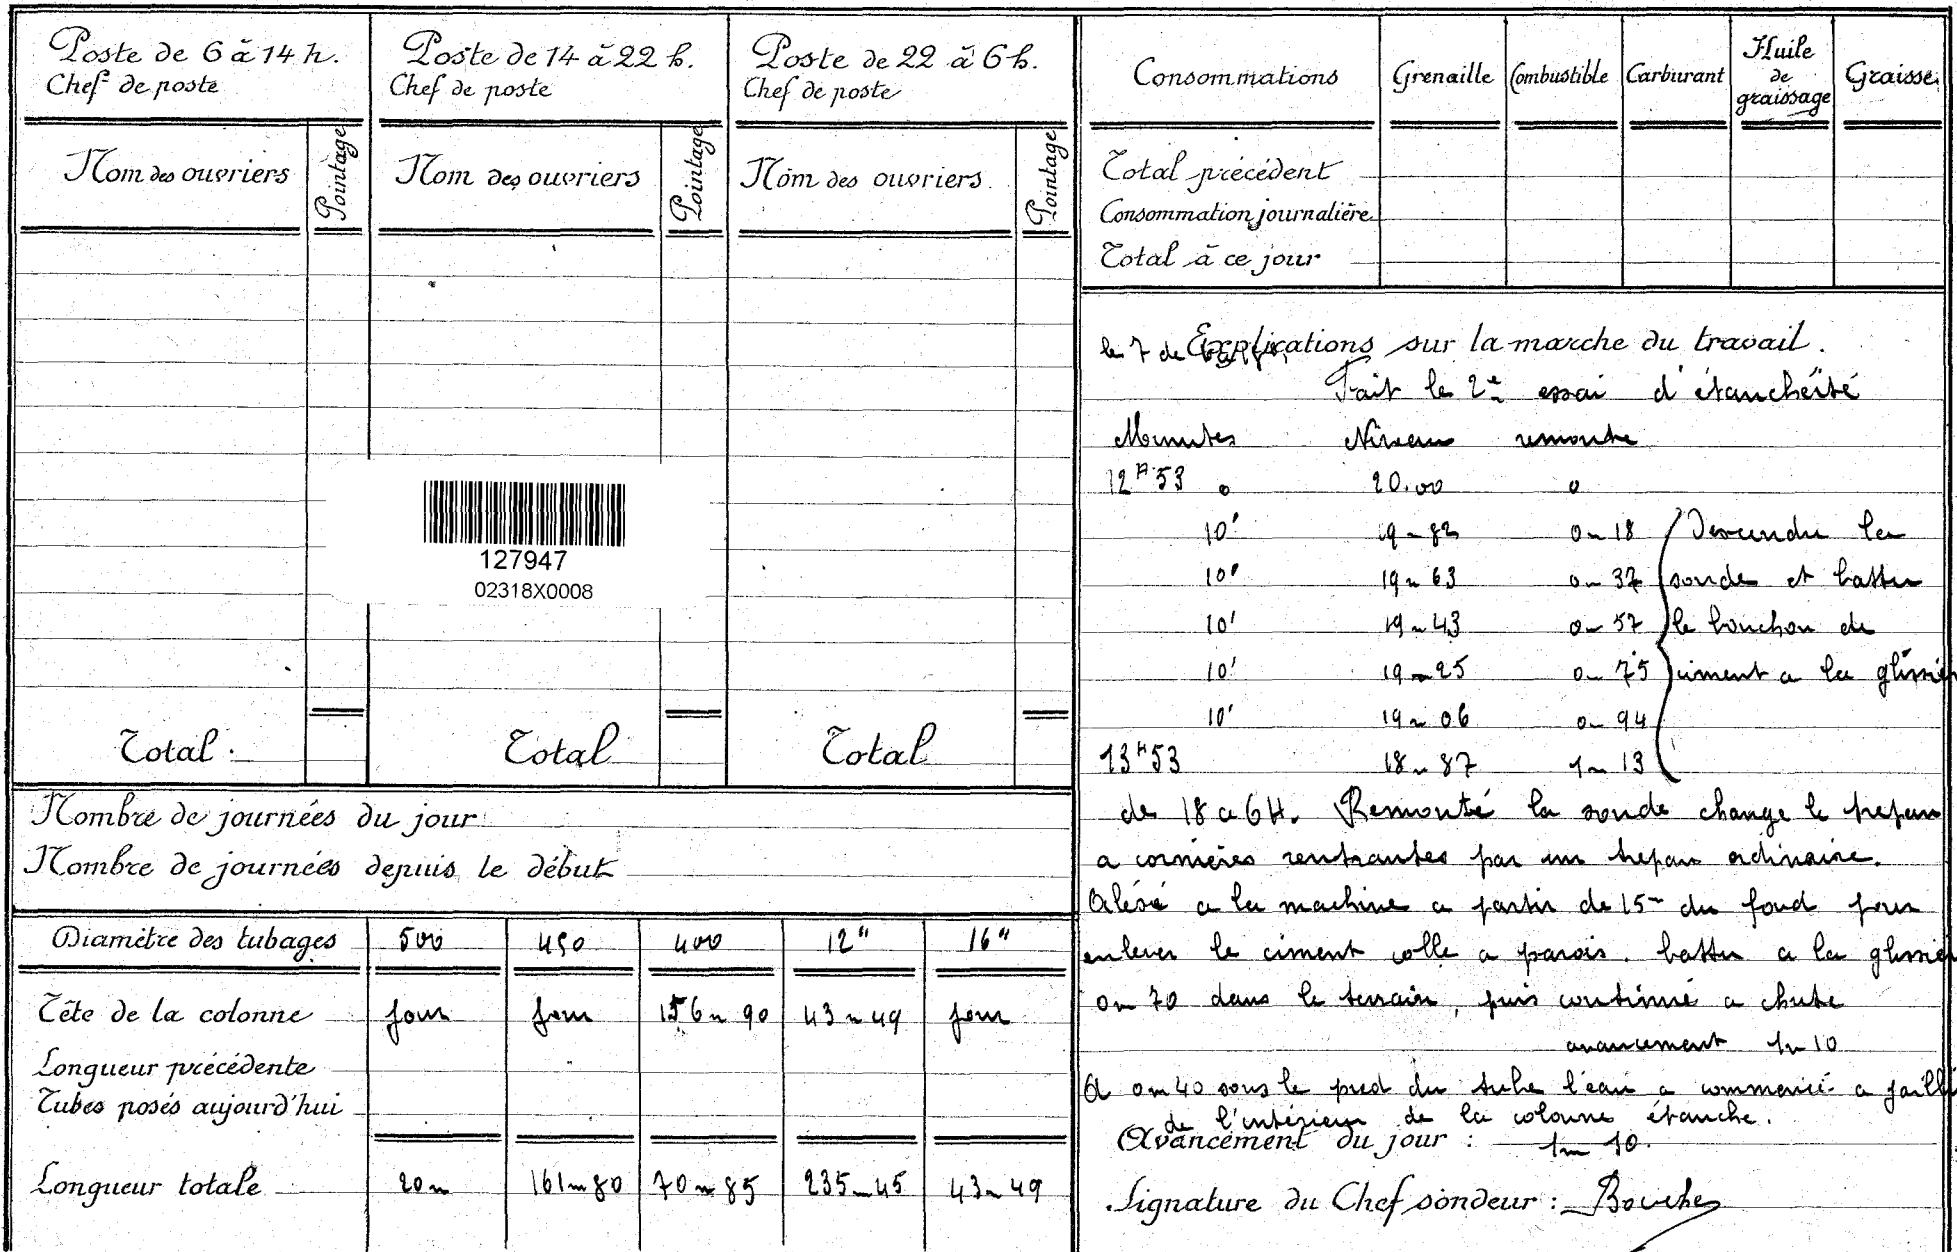 Poste de 6 à 14 h.
Chef de poste
Nom des ouvriers
Pointage
Total
Poste de 14 à 22 h.
Chef de poste
Nom des ouvriers
Pointage
Total
Poste de 22 à 6 h.
Chef de poste
Nom des ouvriers
Pointage
Total
127947
02318X0008
Nombre de journées du jour
Nombre de journées depuis le début
Diamètre des tubages 500 450 400 12" 16"
Tête de la colonne jour jour 156m90 43m49 jour
Longueur précédente
Tubes posés aujourd'hui
Longueur totale 20m 161m80 70m85 235m45 43m49
Consommations Grenaille Combustible Carburant Huile de graissage Graisse
Total précédent
Consommation journalière
Total à ce jour
Explications sur la marche du travail.
le 7 de
Fait le 2e essai d'étanchéité
Minutes Niveau remonte
12H53 0 20.00 0
10' 19m82 0m18 Descendu la
10' 19m63 0m37 sonde et battu
10' 19m43 0m57 le bouchon de
10' 19m25 0m75 ciment a la
10' 19m06 0m94
13H53 18m87 1m13
de 18 a 6H. Remonté la sonde change le trepan
a cornières rentrantes par un trepan ordinaire.
Alésé a la machine a partir de 15m du fond pour
enlever le ciment colle a parois. battu a la
0m70 dans le terrain, puis continué a chute
avancement 1m10
A 0m40 sous le pied du tube l'eau a commencé a
de l'intérieur de la colonne étanche.
Avancement du jour : 1m10.
Signature du Chef sondeur :